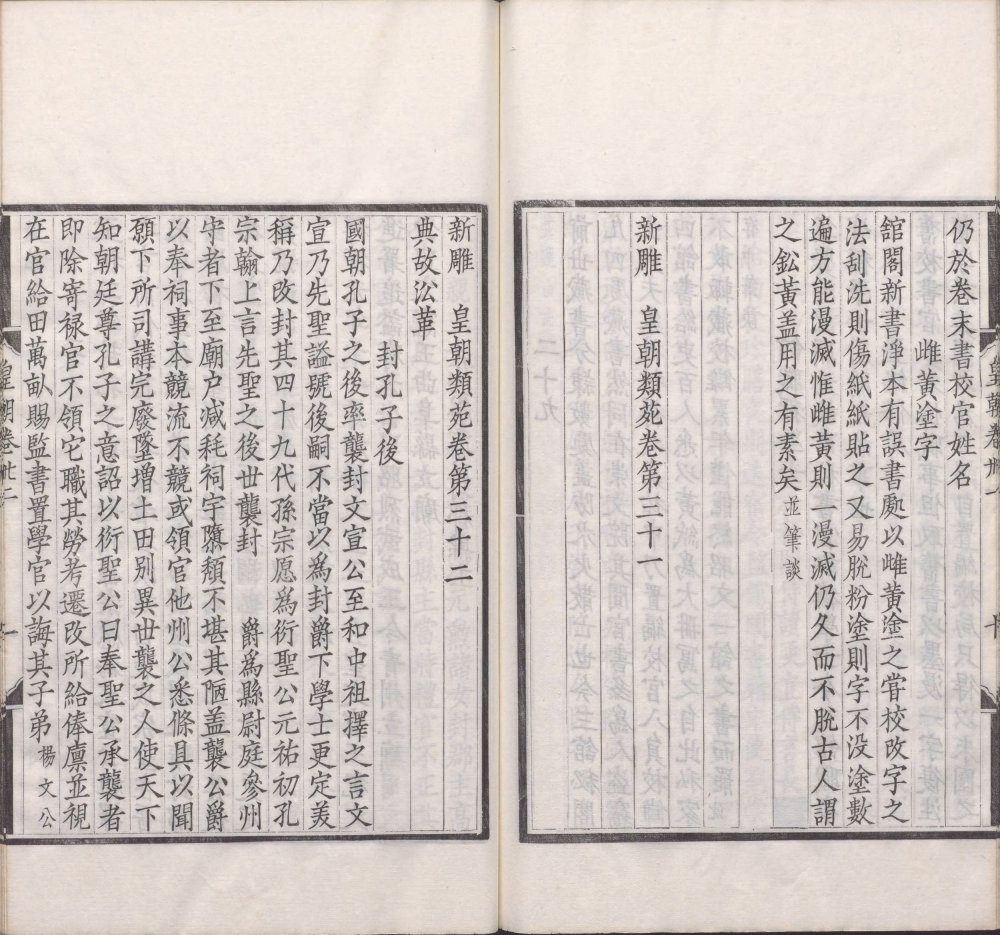 仍於卷末書校官姓名
雌黃塗字
舘閣新書淨本有誤書處以雌黃塗之甞校改字之
法刮洗則傷紙紙貼之又易脫粉塗則字不没塗數
遍方能漫滅惟雌黃則一漫滅仍久而不脫古人謂
之鈆黃盖用之有素矣並筆談
新雕 皇朝類苑卷第三十一
新雕 皇朝類苑卷第三十二
典故沿革
封孔子後
國朝孔子之後率襲封文宣公至和中祖擇之言文
宣乃先聖謚號後嗣不當以爲封爵下學士更定美
稱乃改封其四十九代孫宗愿爲衍聖公元祐初孔
宗翰上言先聖之後世襲封 爵爲縣尉庭參州
守者下至廟户减耗祠宇隳頽不堪其陋盖襲公爵
以奉祠事本競流不競或領官他州公悉條具以聞
願下所司講完廢墜增土田别異世襲之人使天下
知朝廷尊孔子之意詔以衍聖公曰奉聖公承襲者
即除寄禄官不領它職其勞考遷改所給俸廪並視
在官給田萬畝賜監書置學官以誨其子弟楊文公